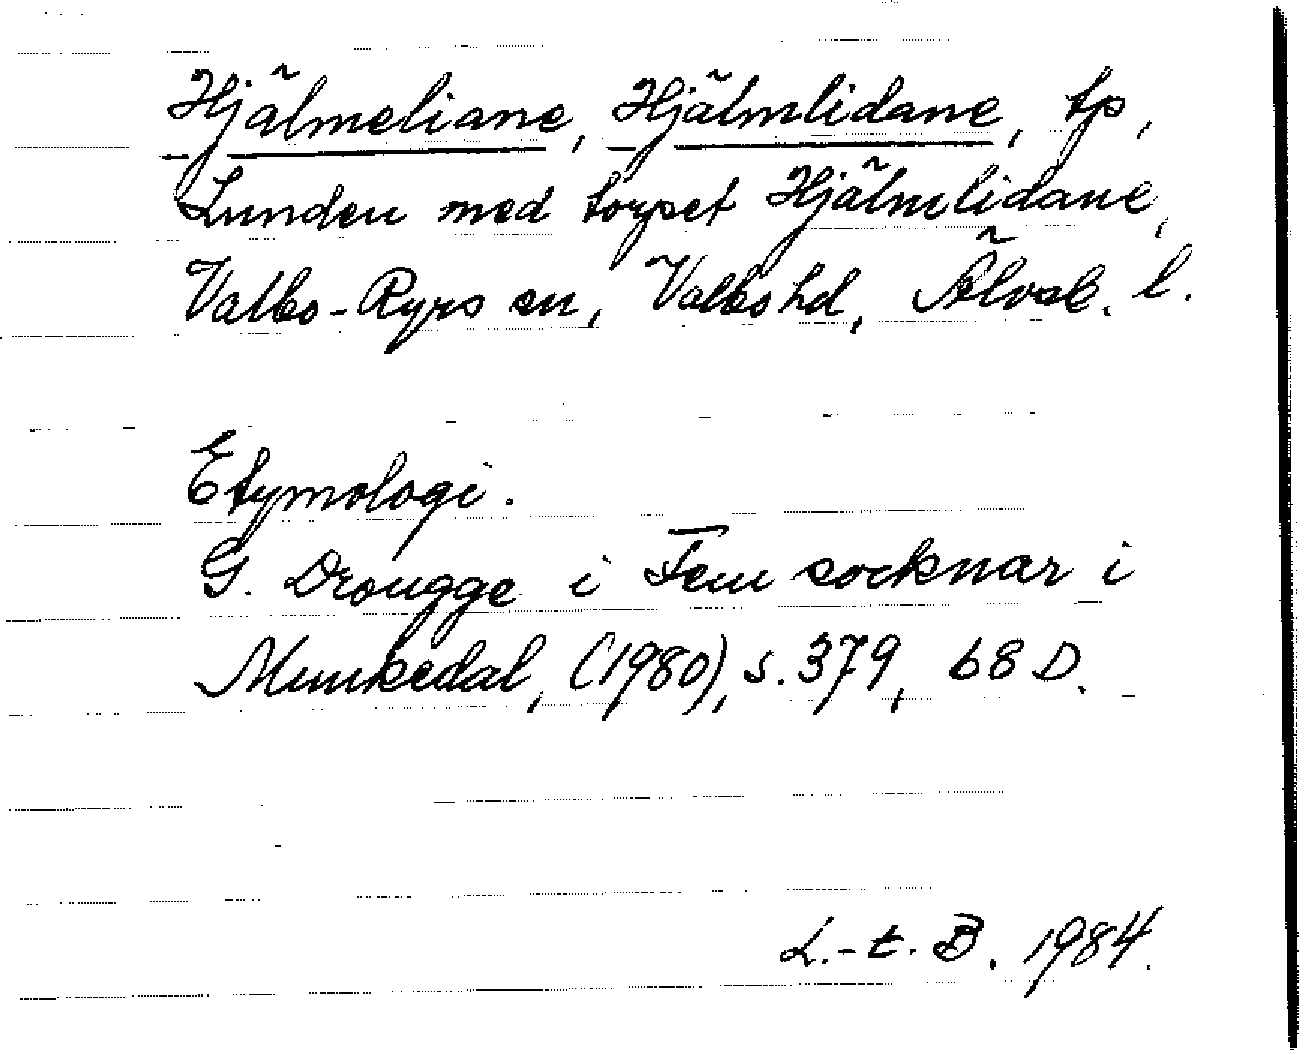 Hjälmeliane, Hjälmlidane, tp,
Lunden med torpet Hjälmlidane,
Valbo-Ryrs sn, Valbo hd, Älvsb. l.
Etymologi.
G. Drougge i Fem socknar i
Munkedal, (1980), s. 379, 68 D.
L.-t. B. 1984.